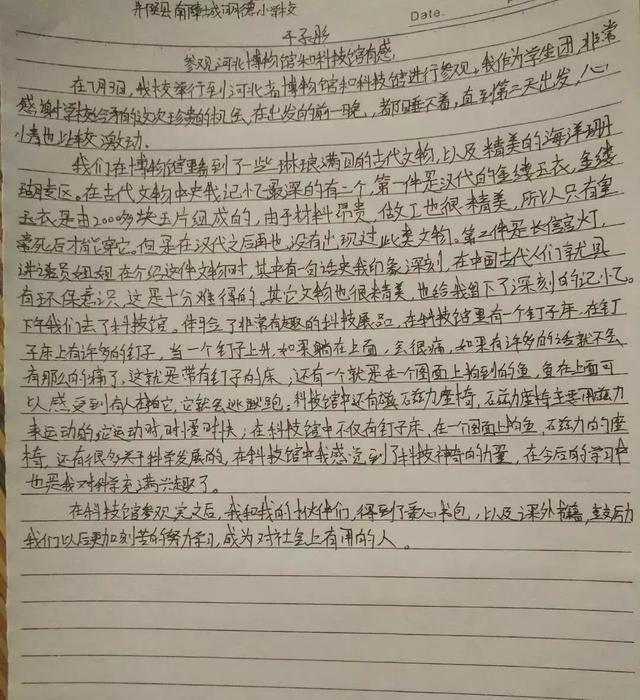 井陉县南障城明德小学校
Date.
于子彤
参观河北博物馆和科技馆有感
在7月3日,我校举行到河北省博物馆和科技馆进行参观,我作为学生团,非常
感谢学校给予的这次珍贵的机会,在出发的前一晚,都睡不着,直到第二天出发,心
情也比较激动.
我们在博物馆里看到了一些琳琅满目的古代文物,以及精美的海洋珊
瑚专区。在古代文物中使我记忆最深的有二个,第一件是汉代的金缕玉衣,金缕
玉衣是由2000多块玉片组成的,由于材料昂贵,做工也很精美,所以只有皇
死后才能穿它。但是在汉代之后再也没有出现过此类文物。第二件是长信宫灯,
讲演员姐姐在介绍这件文物时,其中有一句话使我印象深刻,在中国古代人们就具
有环保意识,这是十分难得的。其它文物也很精美,也给我留下了深刻的记忆。
下午我们去了科技馆。体验了非常有趣的科技展品,在科技馆里有一个钉子床,在钉
子床上有许多的钉子,当一个钉子上升,如果躺在上面,会很痛,如果有许多的话就不会
有那么的痛了,这就是带有钉子的床;还有一个就是在一个图面上拍到的鱼,鱼在上面可
以感受到有人在拍它,它就会逃跑;科技馆中还有磁石磁力座椅,石磁力座椅主要用磁力
来运动的,它运动时,时慢时快;在科技馆中不仅有钉子床,在一个图面上的鱼,石磁力的座
椅,还有很多关于科学发展的,在科技馆中我感觉到了科技神奇的力量,在今后的学习中
也是我对科学充满兴趣了。
在科技馆参观完之后,我和我的小伙伴们,得到了爱心书包,以及课外书籍,鼓励
我们以后更加刻苦的努力学习,成为对社会上有用的人。